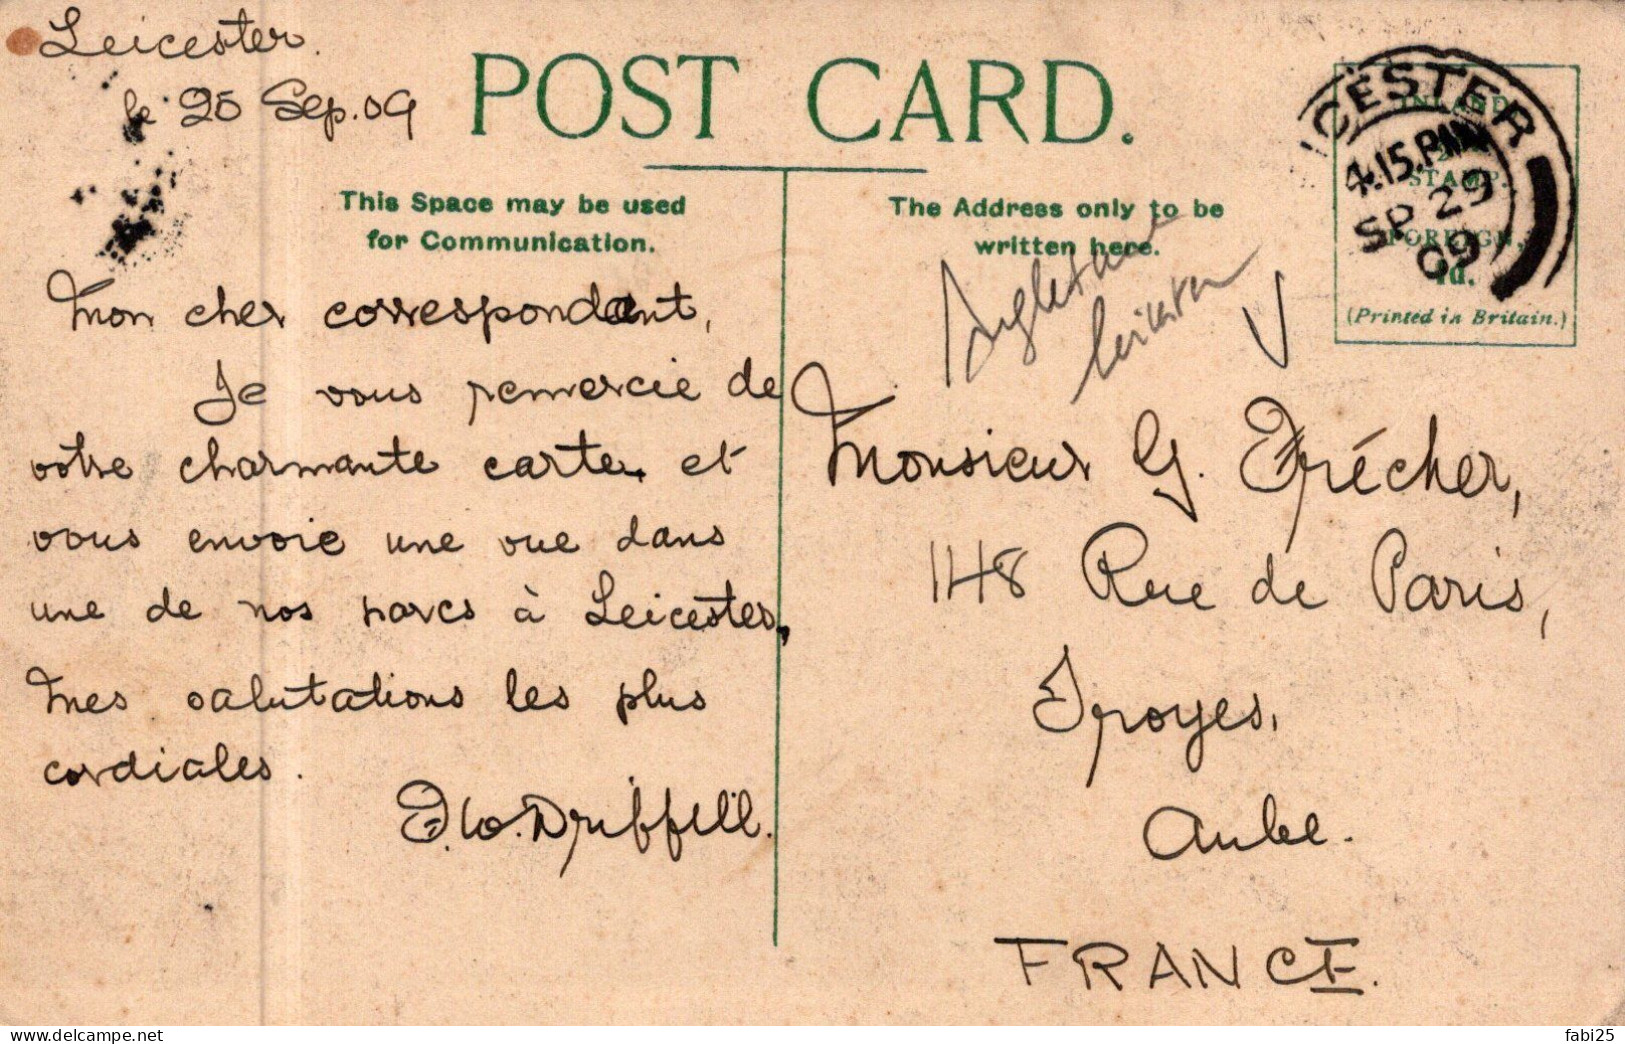 Leicester.
le 25 Sep. 09
POST CARD.
This Space may be used
for Communication.
The Address only to be
written here.
ICESTER
4.15.PM
SP 29
09
INLAND
STAMP.
FOREIGN,
1d.
(Printed in Britain.)
Angleterre
Leicester
Mon cher correspondant,
Je vous remercie de
votre charmante carte et
vous envoie une vue dans
une de nos parcs à Leicester,
Mes salutations les plus
cordiales.
Driffill.
Monsieur G. Frécher,
148 Rue de Paris,
Troyes,
Aube.
FRANCE.
fabi25